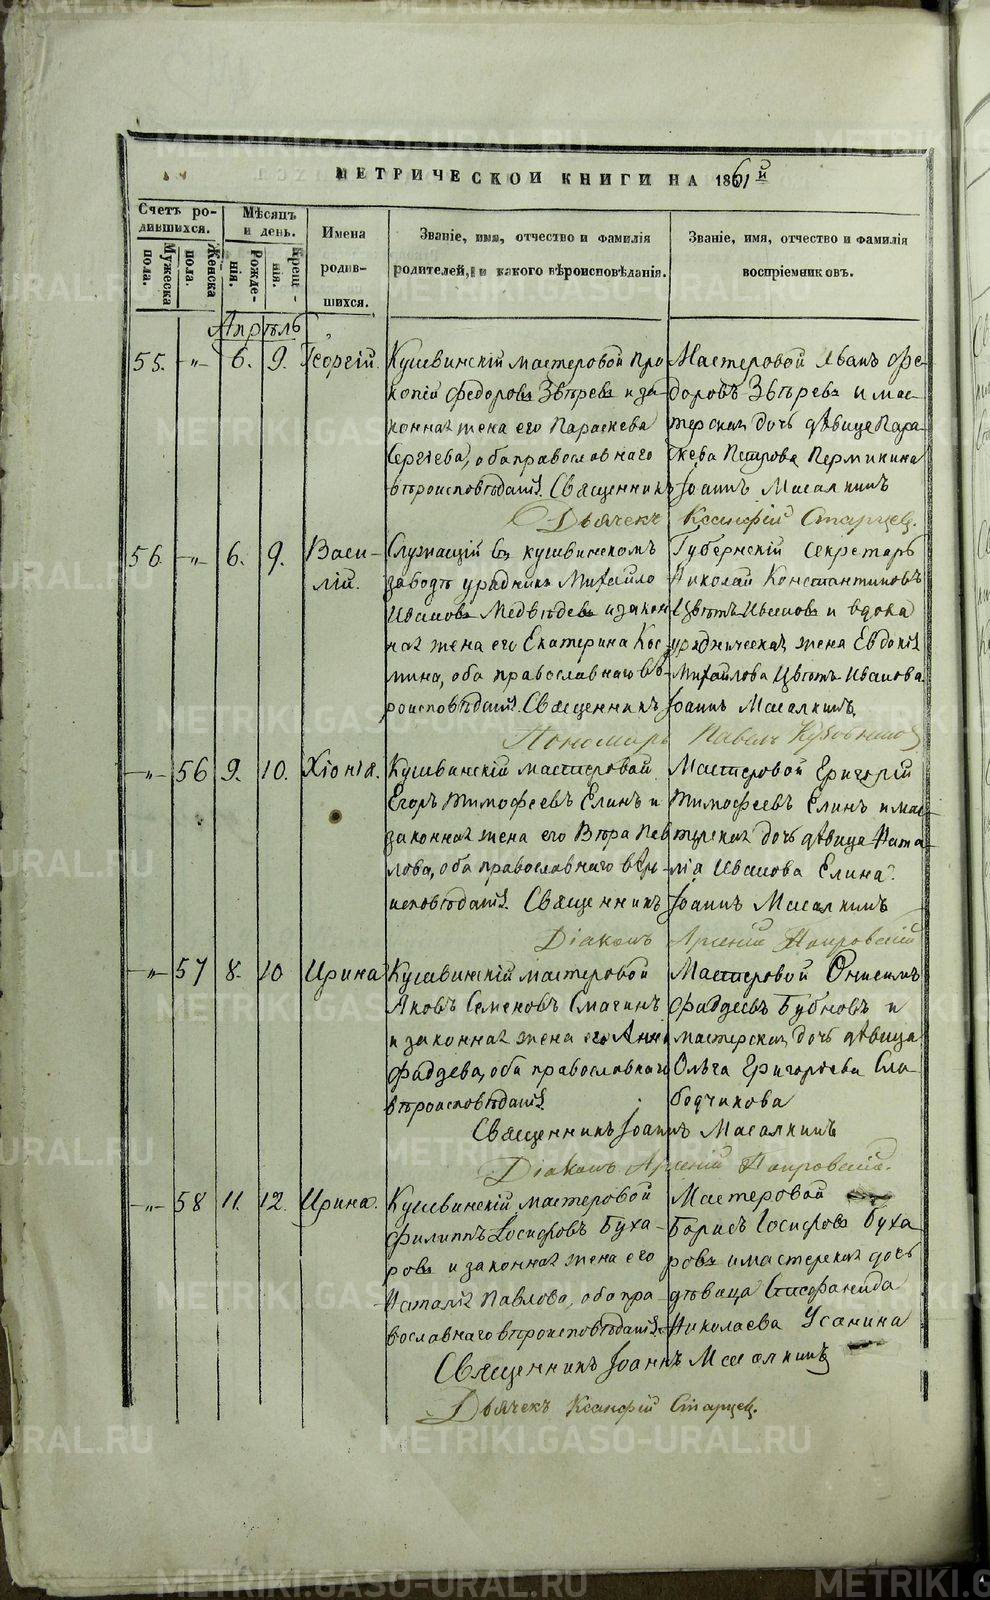 МЕТРИЧЕСКОЙ КНИГИ НА 1861й
Счетъ родившихся.
Мѣсяцъ и день.
Имена родившихся.
Званіе, имя, отчество и фамилія родителей, и какого вѣроисповѣданія.
Званіе, имя, отчество и фамилія воспріемниковъ.
Мужеска пола.
Женска пола.
Рожденія.
Крещенія.
Апрѣль
55. -"- 6. 9. Георгій.
Кушвинскій мастеровой Про
копій Федоровъ Звѣревъ и за-
конная жена его Параскева
Сергѣева, оба православнаго
вѣроисповѣданія.
Мастеровой Иванъ Фе-
доровъ Звѣревъ и мас-
терская дочь дѣвица Пара-
скева Петрова Пермикина
Священникъ Іоаннъ Масалкинъ
Дьячекъ Ксанфій Старцев.
56 -"- 6. 9. Васи-
лій.
Служащій въ кушвинскомъ
заводѣ урядникъ Михайло
Ивановъ Медвѣдевъ и закон
ная жена его Екатерина Кос
мина, оба православнаго вѣ-
роисповѣданія.
Губернскій секретарь
Николай Константиновъ
Цвѣтъ-Ивановъ и вдова
урядническая жена Евдокія
Михайлова Цвѣтъ-Иванова.
Священникъ Іоаннъ Масалкинъ
Пономарь Павелъ
-"- 56 9. 10. Хіонія.
Кушвинскій мастеровой
Егоръ Тимофеевъ Елинъ и
законная жена его Вѣра Пав
лова, оба православнаго вѣро-
исповѣданія.
Мастеровой Григорій
Тимофеевъ Елинъ и мас-
терская дочь дѣвица Ната-
лія Иванова Елина.
Священникъ Іоаннъ Масалкинъ
Діаконъ Арсеній
-"- 57 8. 10 Ирина
Кушвинскій мастеровой
Яковъ Семеновъ Смагинъ
и законная жена его Анна
Фаддева, оба православнаго
вѣроисповѣданія.
Мастеровой Онисимъ
Фаддевъ Бубновъ и
мастерская дочь дѣвица
Ольга Григорьева Сло-
бодчикова
Священникъ Іоаннъ Масалкинъ
Діаконъ Арсеній
-"- 58 11. 12. Ирина.
Кушвинскій мастеровой
Филиппъ Іосифовъ Буха-
ровъ и законная жена его
Наталія Павлова, оба пра-
вославнаго вѣроисповѣданія.
Мастеровой
Борисъ Іосифовъ Буха
ровъ и мастерская дочь
дѣвица Стефанида
Николаева Усанина
Священникъ Іоаннъ Масалкинъ
Дьячекъ Ксанфій Старцев.
METRIKI.GASO-URAL.RU